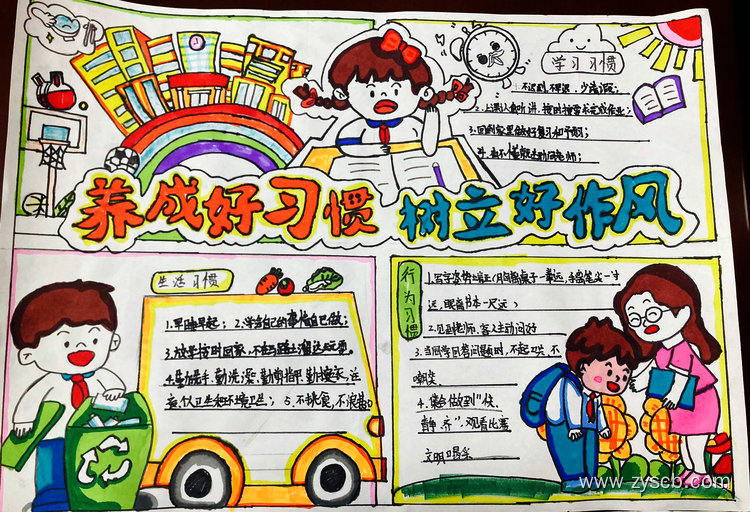 养成好习惯 树立好作风
学习习惯
1.不迟到,不早退,少请假;
2.上课认真听讲,按时按要求完成作业;
3.回到家里做好复习和预习;
生活习惯
1.早睡早起; 2.学会自己的事情自己做;
3.放学按时回家,不在马路上溜达玩耍。
4.勤洗手,勤洗澡,勤剪指甲,勤换衣,注
意个人卫生和环境卫生; 5.不挑食,不浪费。
行为习惯
1.写字姿势端正(月匈离桌子一拳远,手离笔尖一寸
远,眼离书本一尺远)
2.见到老师,客人主动问好
3.当同学回答问题时,不起哄,不
嘲笑
4.集会做到"快
静 齐",观看比赛
文明喝采
www.zyscb.com